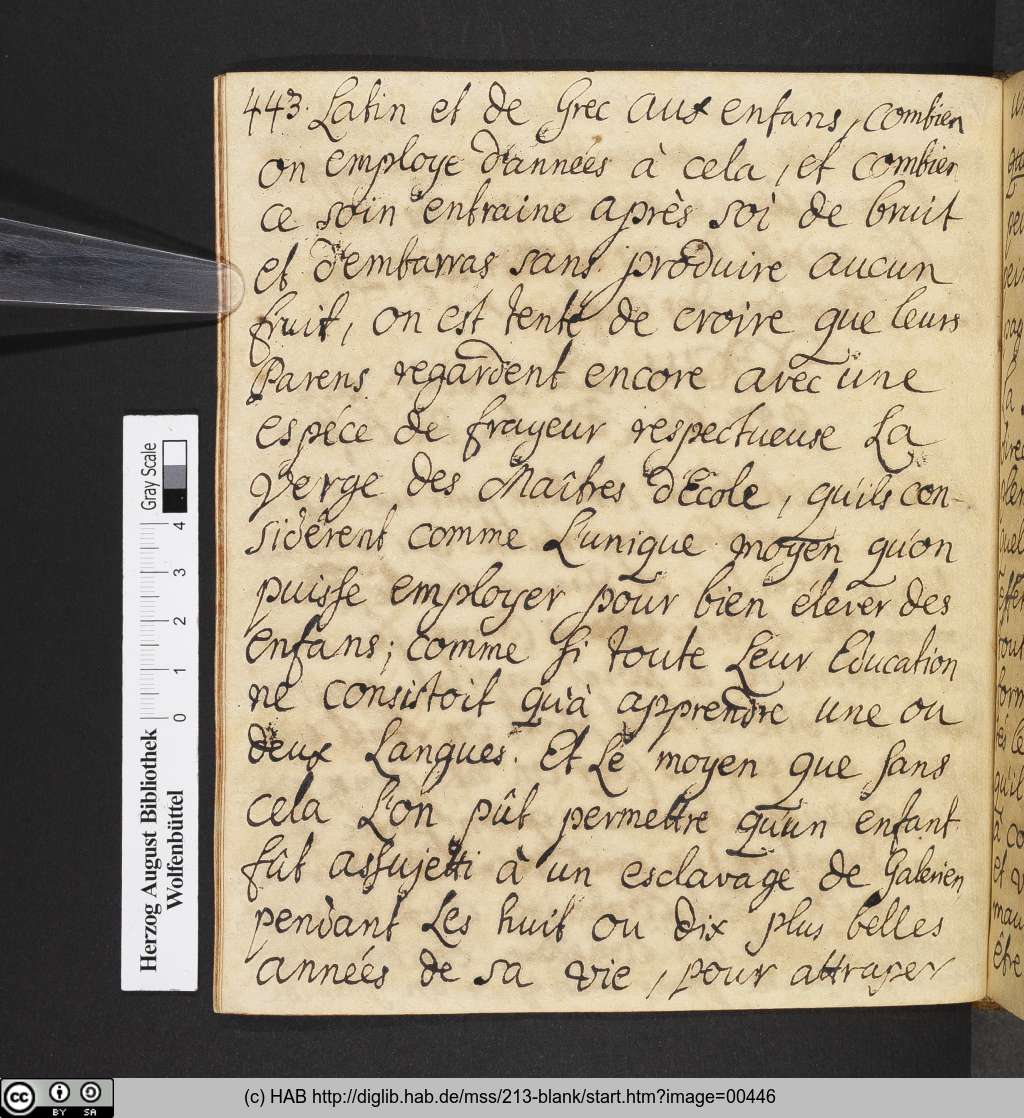 443. Latin et de Grec aux enfans, combien
on employe d'années à cela, et combien
ce soin entraine après soi de bruit
et d'embarras sans produire aucun
fruit, on est tenté de croire que leurs
Parens regardent encore avec une
espéce de frayeur respectueuse La
Verge des Maîtres d'Ecole, qu'ils con-
sidérent comme L'unique moyen qu'on
puisse employer pour bien élever des
enfans; comme si toute Leur Education
ne consistoit qu'à apprendre une ou
deux Langues. Et Le moyen que sans
cela L'on pût permettre qu'un enfant
fût assujetti à un esclavage de Galerien
pendant Les huit ou dix plus belles
années de sa vie, pour attraper
Herzog August Bibliothek
Wolfenbüttel
0 1 2 3 4
Gray Scale
cc BY SA
(c) HAB http://diglib.hab.de/mss/213-blank/start.htm?image=00446